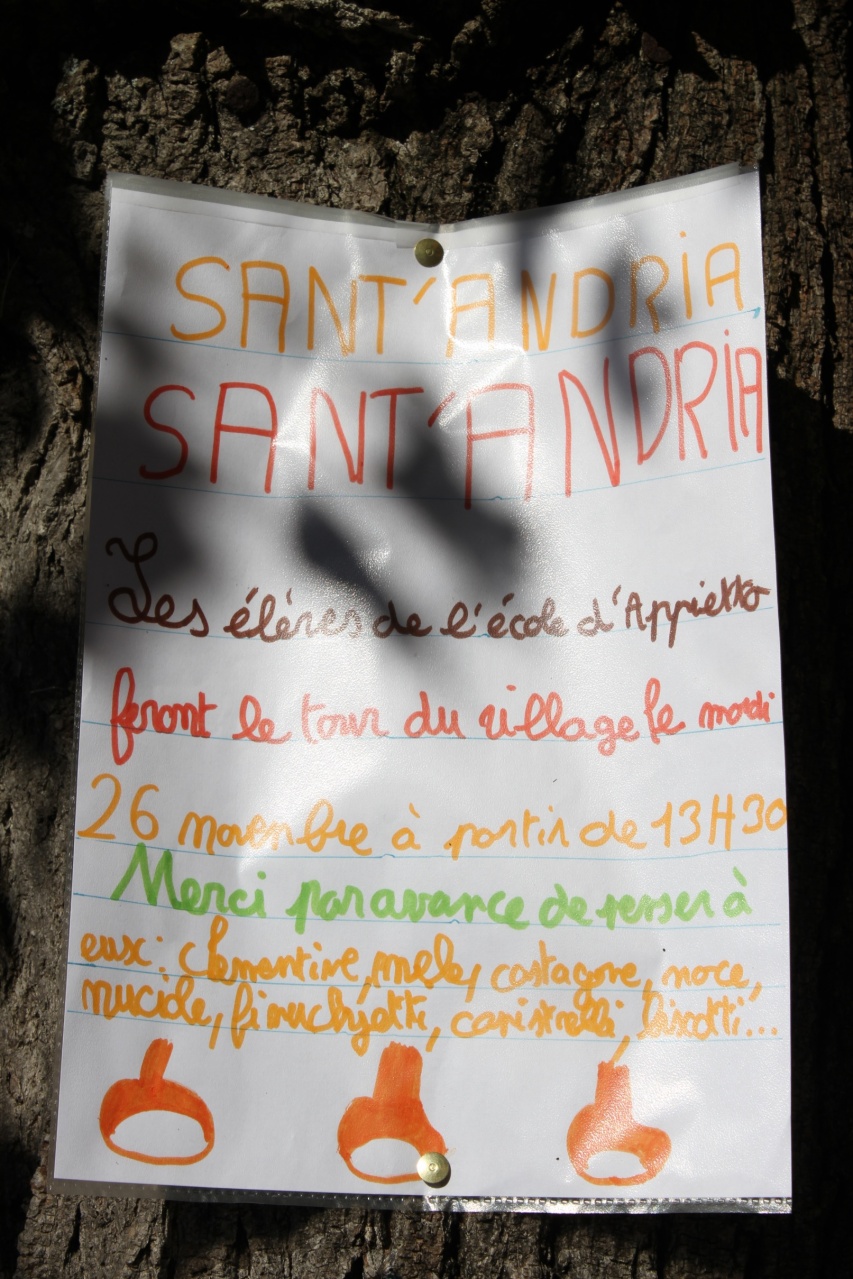 SANT'ANDRIA
SANT'ANDRIA
Les élèves de l'école d'Appietto
feront le tour du village le mardi
26 novembre à partir de 13H30
Merci par avance de penser à
eux: clementine, mele, castagne, noce,
nucicle, finuchjetti, canistrelli, biscotti...